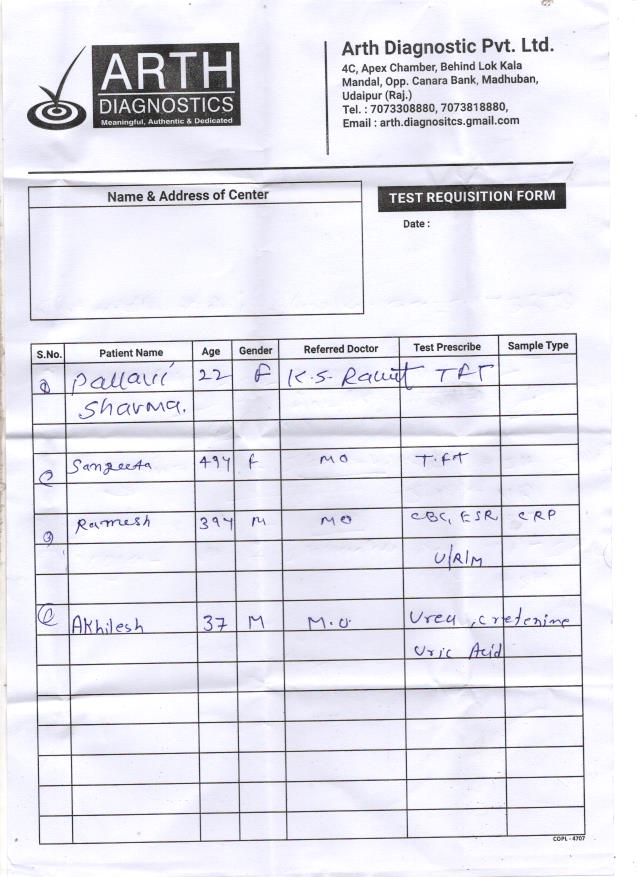 ARTH
DIAGNOSTICS
Meaningful, Authentic & Dedicated
Arth Diagnostic Pvt. Ltd.
4C, Apex Chamber, Behind Lok Kala
Mandal, Opp. Canara Bank, Madhuban,
Udaipur (Raj.)
Tel. : 7073308880, 7073818880,
Email : arth.diagnositcs.gmail.com
Name & Address of Center
TEST REQUISITION FORM
Date :
S.No. Patient Name Age Gender Referred Doctor Test Prescribe Sample Type
Pallavi 22 F K.S. Rawit TFT
Sharma.
Sangeeta 49Y F MO T.FT
Ramesh 39Y M MO CBC, ESR, CRP
U/R/M
Akhilesh 37 M M.O. Urea, Cretenine
Uric Acid
COPL - 4707